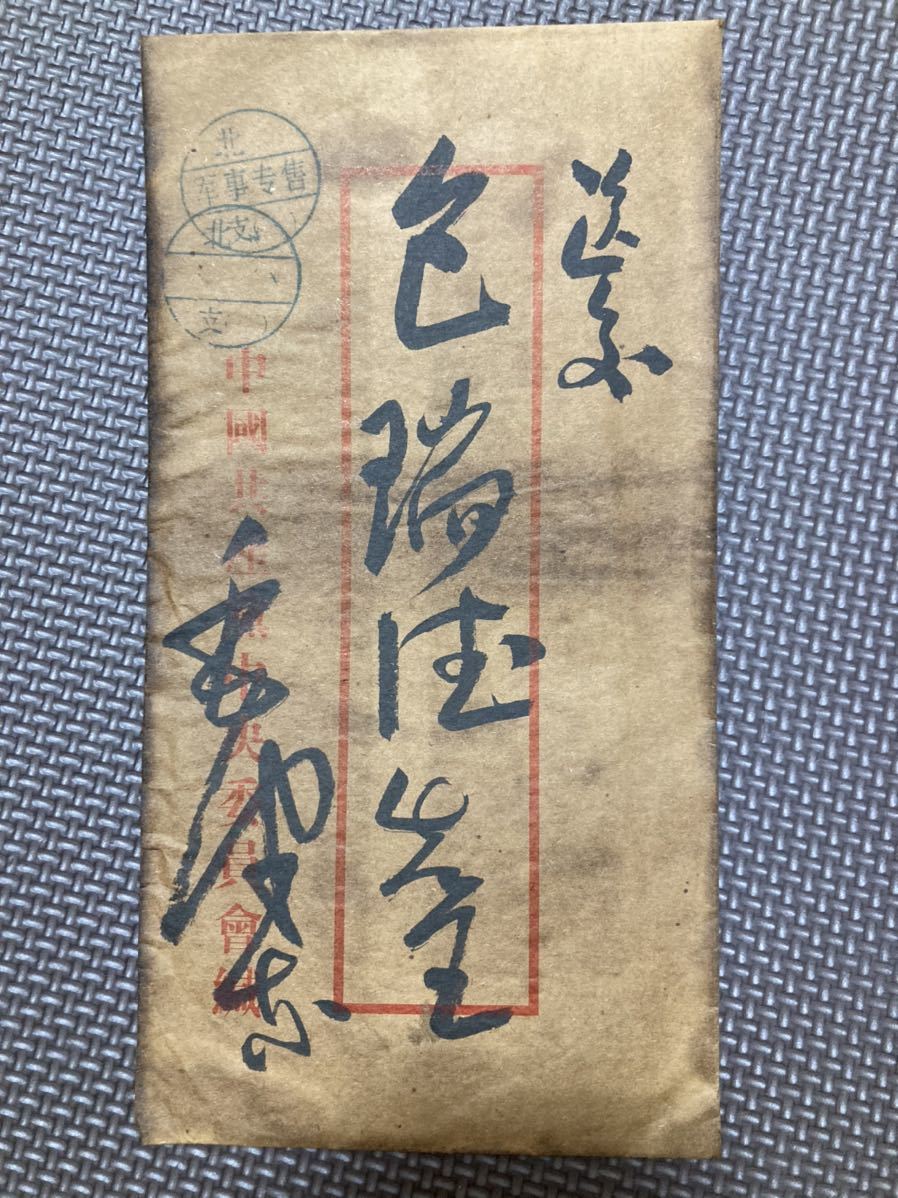 送交
包瑞德先生
毛泽东
中國共產黨中央委員會緘
北
军事专售
北支
支